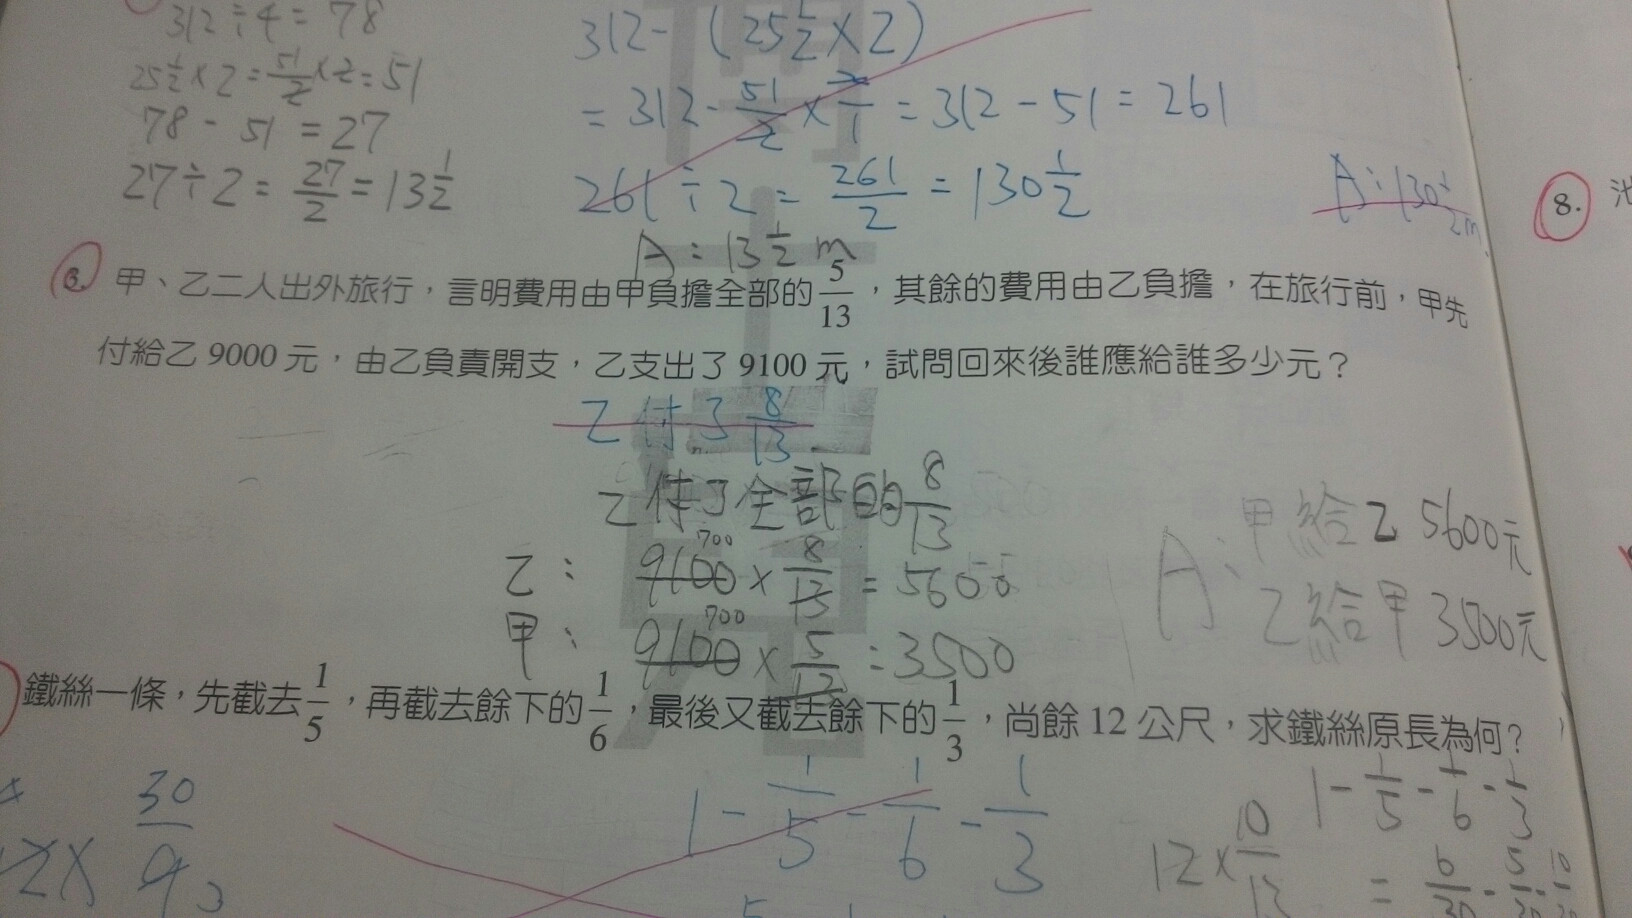 312÷4=78
25½×2=51/2×2=51
78-51=27
27÷2=27/2=13½
312-(25½×2)
=312-51/2×2/1=312-51=261
261÷2=261/2=130½
A:130½m
A:13½m
8.
甲、乙二人出外旅行，言明費用由甲負擔全部的5/13，其餘的費用由乙負擔，在旅行前，甲先
付給乙9000元，由乙負責開支，乙支出了9100元，試問回來後誰應給誰多少元？
乙付了8/13
乙付了全部的8/13
700
乙：9100×8/13=5600
700
甲：9100×5/13=3500
A:甲給乙5600元
乙給甲3500元
鐵絲一條，先截去1/5，再截去餘下的1/6，最後又截去餘下的1/3，尚餘12公尺，求鐵絲原長為何？
30/9
1-1/5-1/6-1/3
12×10/13
1-1/5-1/6-1/3